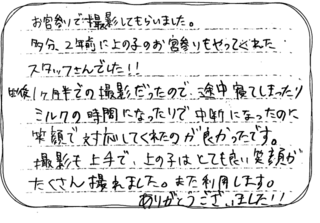 お宮参りで撮影してもらいました。
多分、2年前に上の子のお宮参りもやってくれた
スタッフさんでした!!
生後1ヶ月半での撮影だったので、途中寝てしまったり
ミルクの時間になったりで中断になったのに
笑顔で対応してくれたのが良かったです。
撮影も上手で、上の子はとても良い笑顔が
たくさん撮れました。また利用します。
ありがとうございました!!